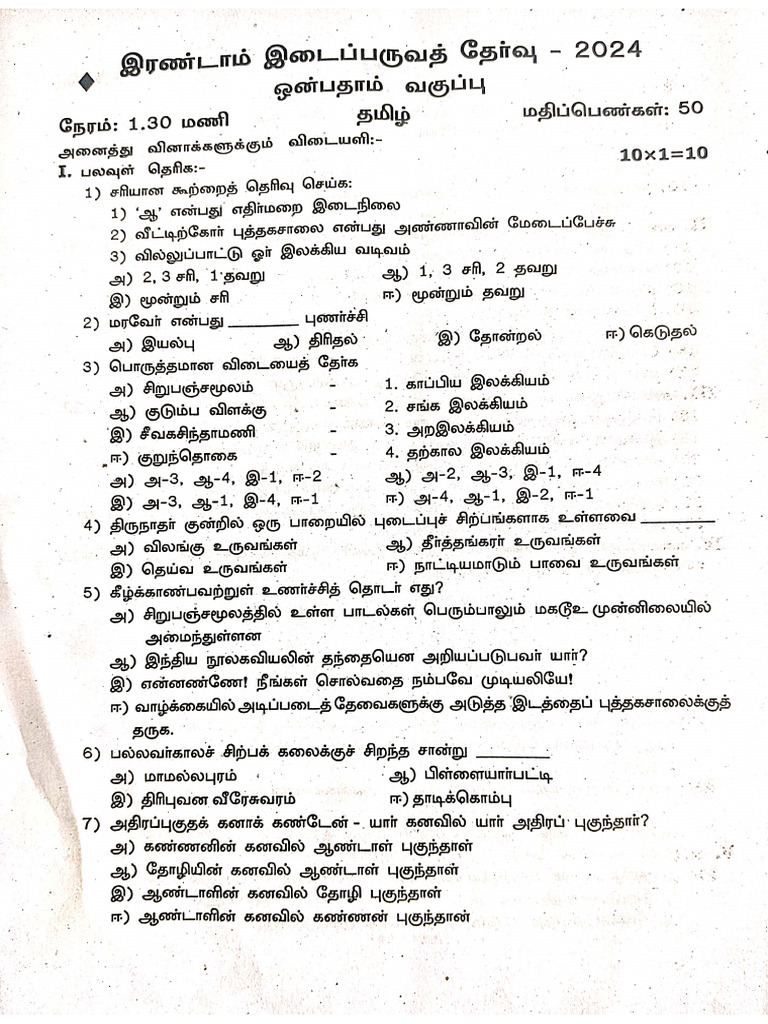 இரண்டாம் இடைப்பருவத் தேர்வு - 2024
ஒன்பதாம் வகுப்பு
நேரம்: 1.30 மணி தமிழ் மதிப்பெண்கள்: 50
அனைத்து வினாக்களுக்கும் விடையளி:-
I. பலவுள் தெரிக:- 10×1=10
1) சரியான கூற்றைத் தெரிவு செய்க:
1) ‘ஆ’ என்பது எதிர்மறை இடைநிலை
2) வீட்டிற்கோர் புத்தகசாலை என்பது அண்ணாவின் மேடைப்பேச்சு
3) வில்லுப்பாட்டு ஓர் இலக்கிய வடிவம்
அ) 2, 3 சரி, 1 தவறு ஆ) 1, 3 சரி, 2 தவறு
இ) மூன்றும் சரி ஈ) மூன்றும் தவறு
2) மரவேர் என்பது ________ புணர்ச்சி
அ) இயல்பு ஆ) திரிதல் இ) தோன்றல் ஈ) கெடுதல்
3) பொருத்தமான விடையைத் தேர்க
அ) சிறுபஞ்சமூலம் - 1. காப்பிய இலக்கியம்
ஆ) குடும்ப விளக்கு - 2. சங்க இலக்கியம்
இ) சீவகசிந்தாமணி - 3. அறஇலக்கியம்
ஈ) குறுந்தொகை - 4. தற்கால இலக்கியம்
அ) அ-3, ஆ-4, இ-1, ஈ-2 ஆ) அ-2, ஆ-3, இ-1, ஈ-4
இ) அ-3, ஆ-1, இ-4, ஈ-1 ஈ) அ-4, ஆ-1, இ-2, ஈ-1
4) திருநாதர் குன்றில் ஒரு பாறையில் புடைப்புச் சிற்பங்களாக உள்ளவை ________
அ) விலங்கு உருவங்கள் ஆ) தீர்த்தங்கரர் உருவங்கள்
இ) தெய்வ உருவங்கள் ஈ) நாட்டியமாடும் பாவை உருவங்கள்
5) கீழ்க்காண்பவற்றுள் உணர்ச்சித் தொடர் எது?
அ) சிறுபஞ்சமூலத்தில் உள்ள பாடல்கள் பெரும்பாலும் மகடூஉ முன்னிலையில்
அமைந்துள்ளன
ஆ) இந்திய நூலகவியலின் தந்தையென அறியப்படுபவர் யார்?
இ) என்னண்ணே! நீங்கள் சொல்வதை நம்பவே முடியலியே!
ஈ) வாழ்க்கையில் அடிப்படைத் தேவைகளுக்கு அடுத்த இடத்தைப் புத்தகசாலைக்குத்
தருக.
6) பல்லவர்காலச் சிற்பக் கலைக்குச் சிறந்த சான்று ________
அ) மாமல்லபுரம் ஆ) பிள்ளையார்பட்டி
இ) திரிபுவன வீரேசுவரம் ஈ) தாடிக்கொம்பு
7) அதிரப்புகுதக் கனாக் கண்டேன் - யார் கனவில் யார் அதிரப் புகுந்தார்?
அ) கண்ணனின் கனவில் ஆண்டாள் புகுந்தாள்
ஆ) தோழியின் கனவில் ஆண்டாள் புகுந்தாள்
இ) ஆண்டாளின் கனவில் தோழி புகுந்தாள்
ஈ) ஆண்டாளின் கனவில் கண்ணன் புகுந்தான்